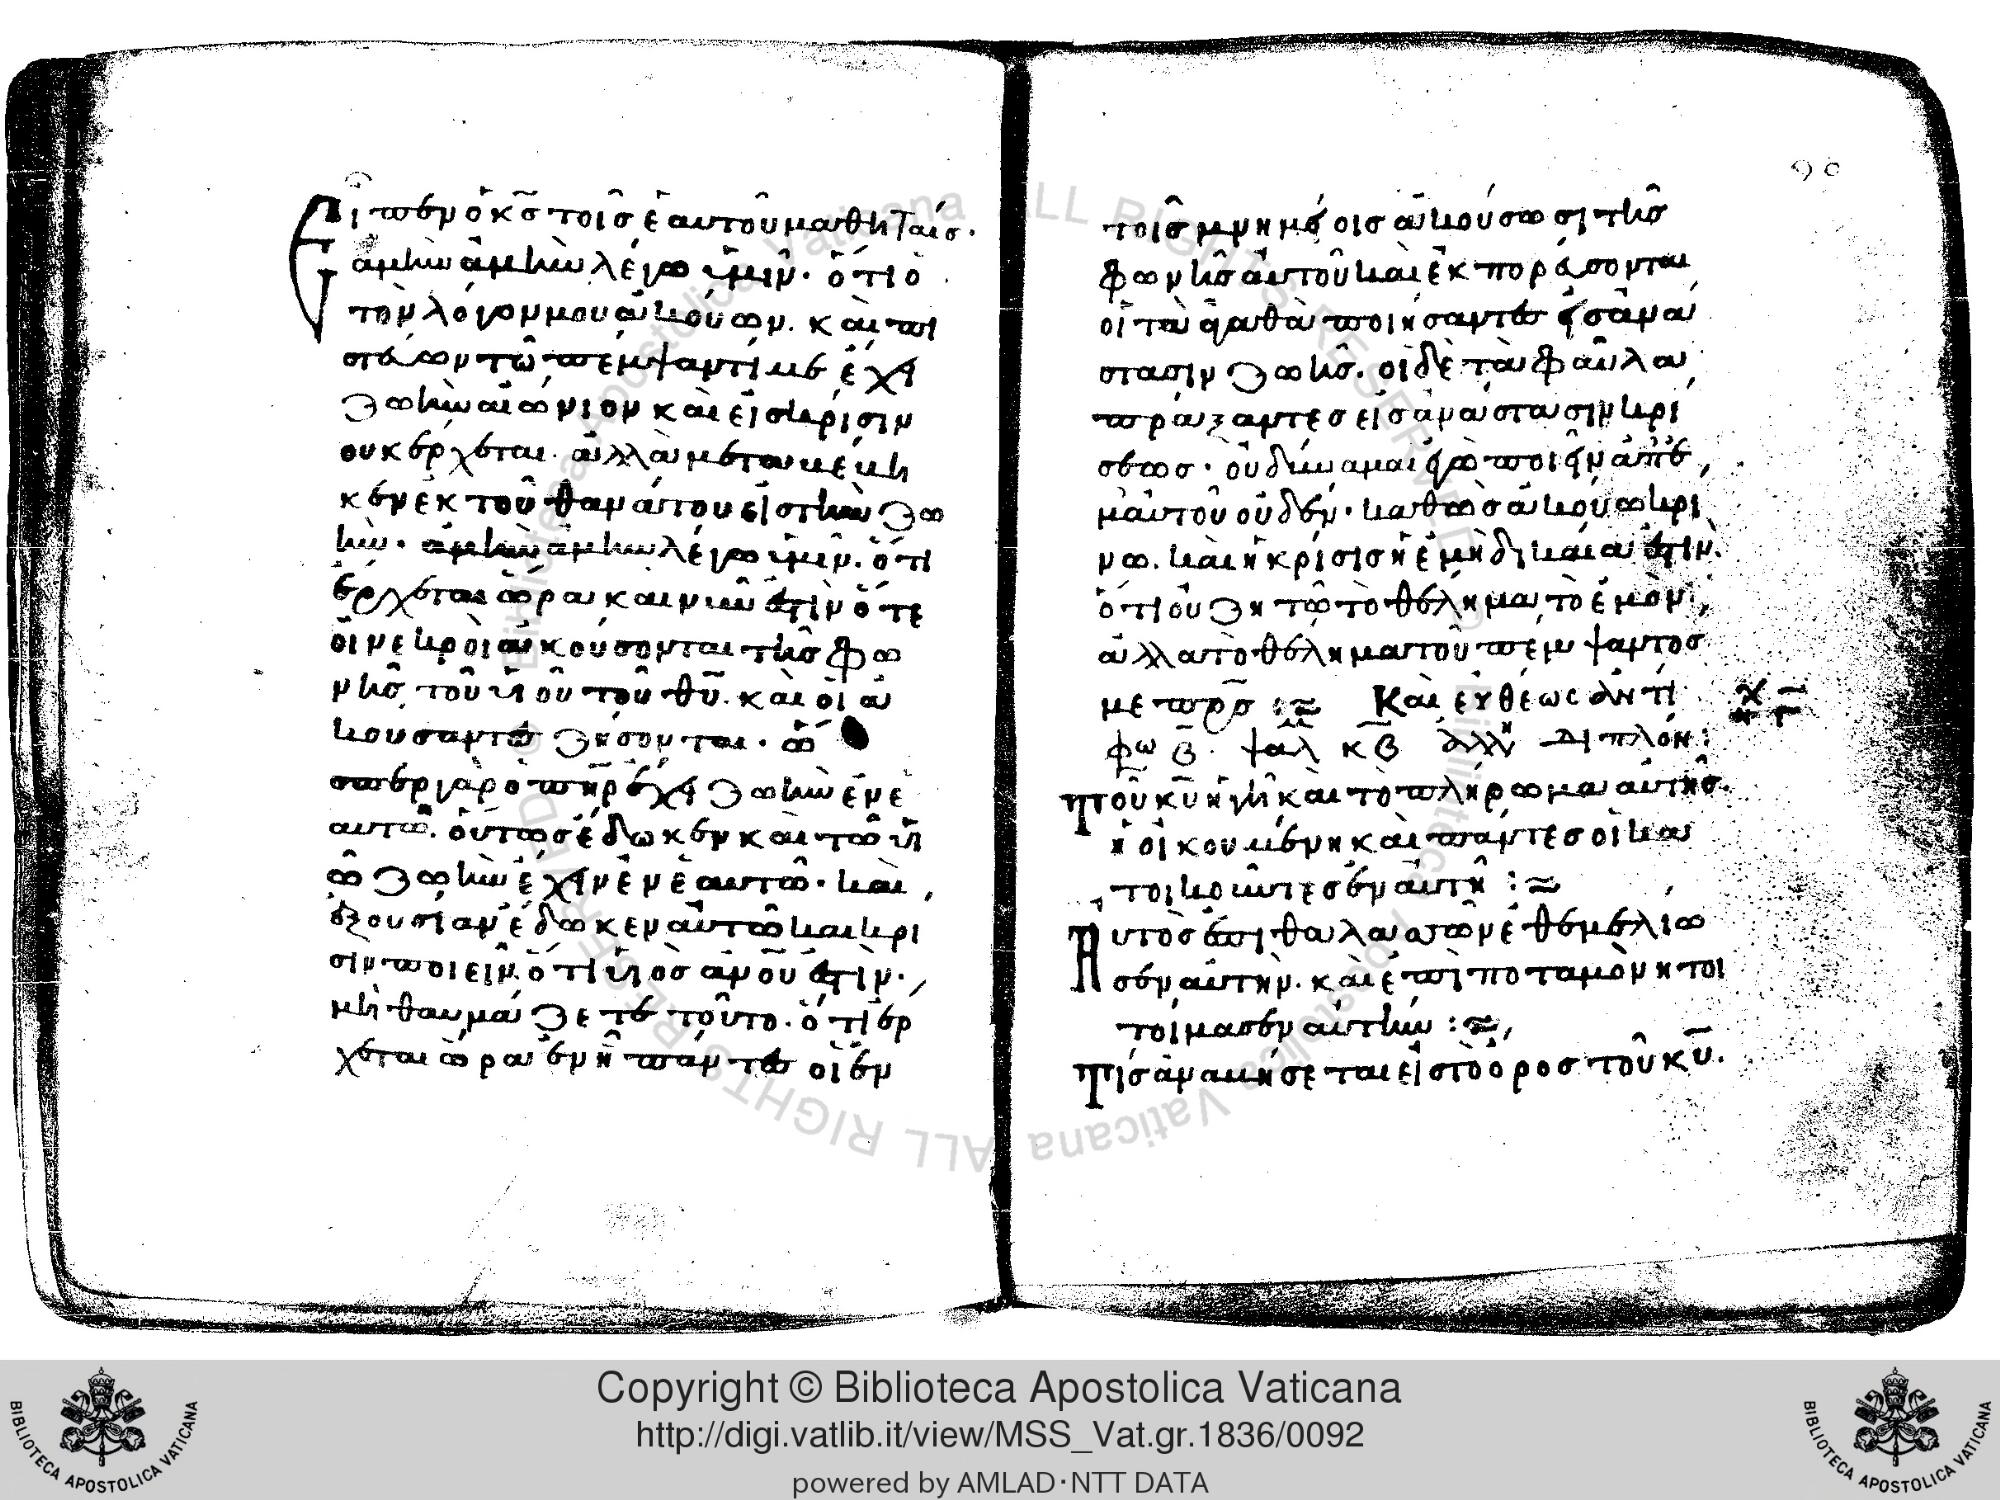 Εἶπεν ὁ κς τοῖς ἑαυτοῦ μαθηταίς·
ἀμὴν ἀμὴν λέγω ὑμῖν· ὅτι ὁ
τὸν λόγον μου ἀκούων. καὶ πι
στεύων τῶ πέμψαντί με ἔχει
ζωὴν αἰώνιον καὶ εἰς κρίσιν
ουκ ερχεται. ἀλλὰ μεταβέβη
κεν ἐκ τοῦ θανάτου εἰς τὴν ζω
ήν· ἀμὴν ἀμὴν λέγω ὑμῖν· ὅτι
ἔρχεται ὥρα και νῦν ἐστὶν ὅτε
οἱ νεκροὶ ἀκούσονται τῆς φω
νῆς τοῦ υἱοῦ τοῦ θυ. καὶ οἱ ἀ
κουσαντες ζήσονται· ὥ
σπερ γὰρ ὁ πηρ ἔχει ζωὴν ἐν ἑ
αυτῶ. οὕτως ἔδωκεν καὶ τῶ υἱ
ῶ ζωὴν ἔχειν ἐν ἑαυτῶ· καὶ
ἐξουσίαν ἔδωκεν αὐτῶ καὶ κρί
σιν ποιεῖν. ὅτι υἱὸς ανου ἐστὶν·
μὴ θαυμάζετε τοῦτο· ὅτι ἔρ
χεται ὥρα ἐν ῆ πάντες οἱ ἐν
90
τοῖς μνημείοις ἀκούσωσι τῆς
φωνῆς αὐτοῦ καὶ ἐκπορεύσονται
οἱ τὰ ἀγαθὰ ποιήσαντες εἰς ἀνά
στασιν ζωῆς. οἱ δὲ τὰ φαῦλα
πράξαντες εἰς ἀνάστασιν κρί
σεως· οὐ δύναμαι ἐγὼ ποιεῖν ἀπ' ἐ
μαυτοῦ οὐδέν· καθὼς ἀκούω κρί
νω. καὶ ἡ κρίσις ἡ ἐμὴ δικαία ἐστὶν.
ὅτι οὐ ζητῶ τὸ θέλημα τὸ ἐμὸν,
ἀλλὰ τὸ θέλημα τοῦ πέμψαντος
με πρς : Καὶ εὐθέως ἀντί
φω β. ψαλμ κβ
Τοῦ κυ ἡ γῆ καὶ τὸ πλήρωμα αὐτῆς.
ἡ οἰκουμένη καὶ πάντες οἱ κα
τοικοῦντες ἐν αὐτῆ :
Αὐτὸς ἐπὶ θαλασσῶν ἐθεμελίω
σεν αὐτὴν. καὶ ἐπὶ ποταμῶν ητοί
τοίμασεν αὐτὴν :
Τίς ἀναβήσεται εἰς τὸ ὄρος τοῦ κυ.
Copyright © Biblioteca Apostolica Vaticana
http://digi.vatlib.it/view/MSS_Vat.gr.1836/0092
powered by AMLAD·NTT DATA
BIBLIOTECA APOSTOLICA VATICANA
BIBLIOTECA APOSTOLICA VATICANA